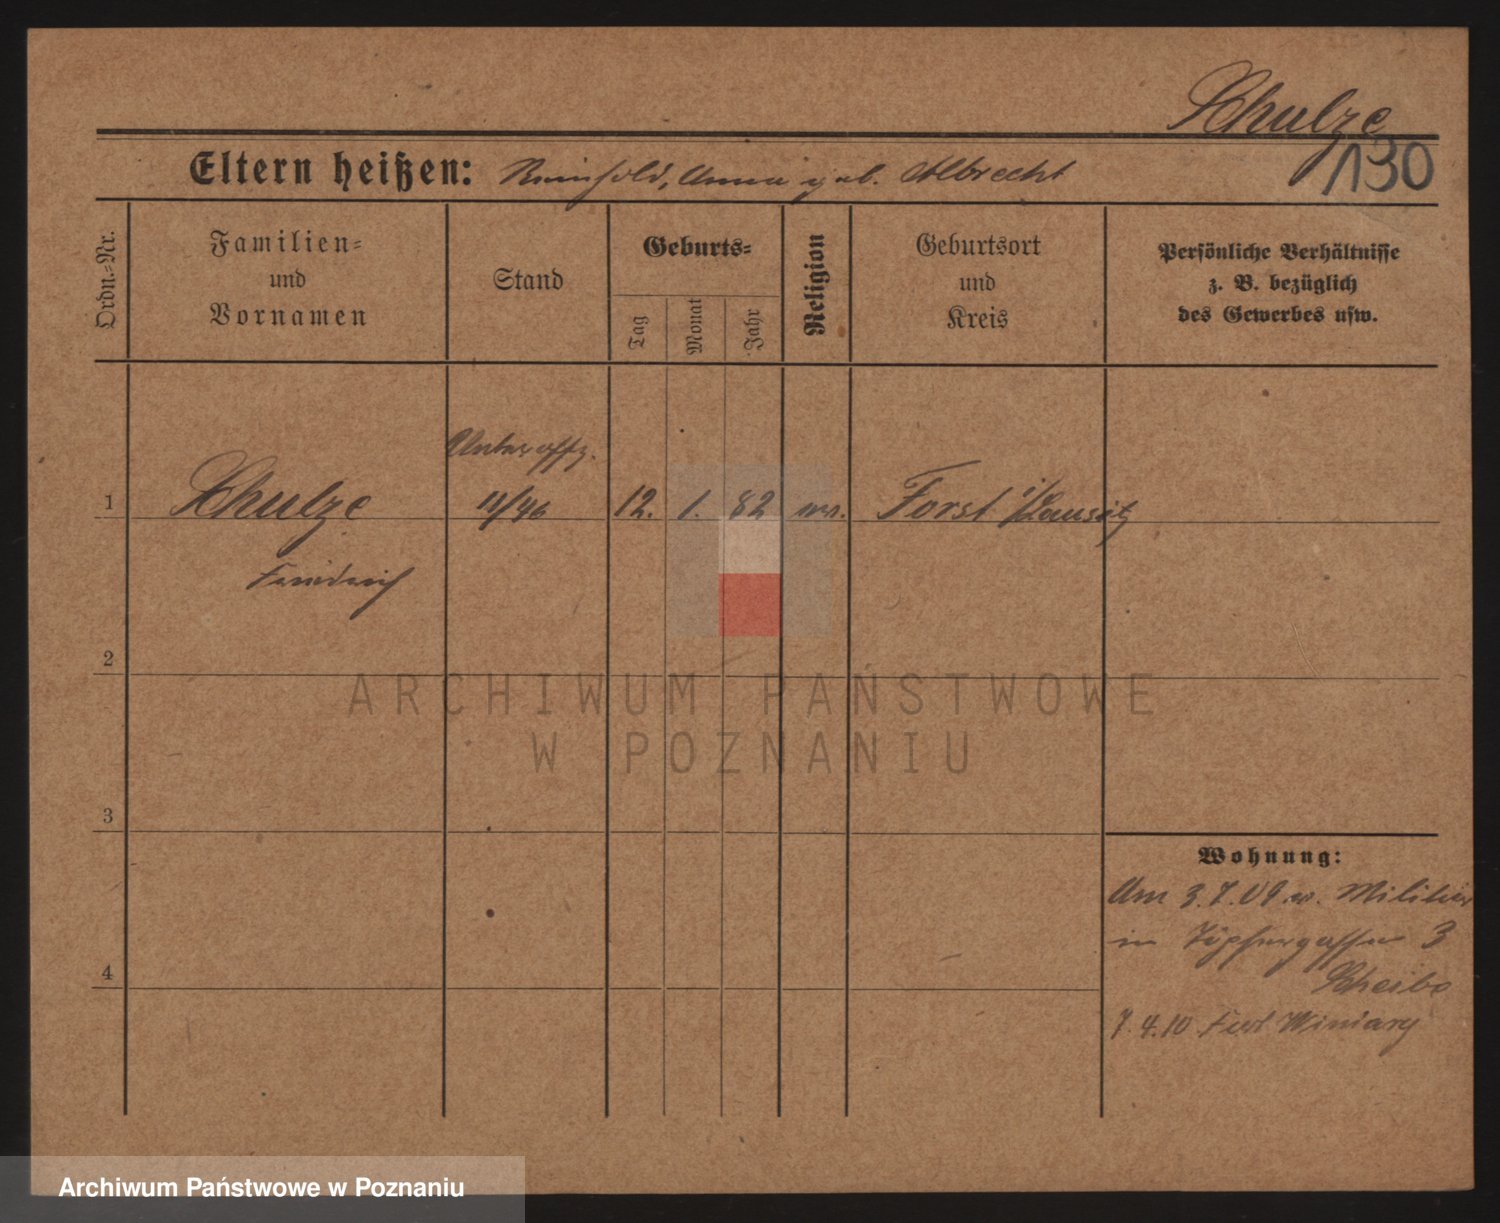 Schulze
130
Eltern heißen: Reinhold, Anna geb. Albrecht
Ordn.-Nr.
Familien-
und
Vornamen
Stand
Geburts-
Tag
Monat
Jahr
Religion
Geburtsort
und
Kreis
Persönliche Verhältnisse
z. B. bezüglich
des Gewerbes usw.
Unteroffz.
1 Schulze 11/46 12. 1. 82 Forst i/Lausitz
Friedrich
2
ARCHIWUM PAŃSTWOWE
W POZNANIU
3
Wohnung:
Am 3.7.09 v. Militär
in Töpfergasse 3
Scheibe
4
7.4.10 Fort Winiary
Archiwum Państwowe w Poznaniu